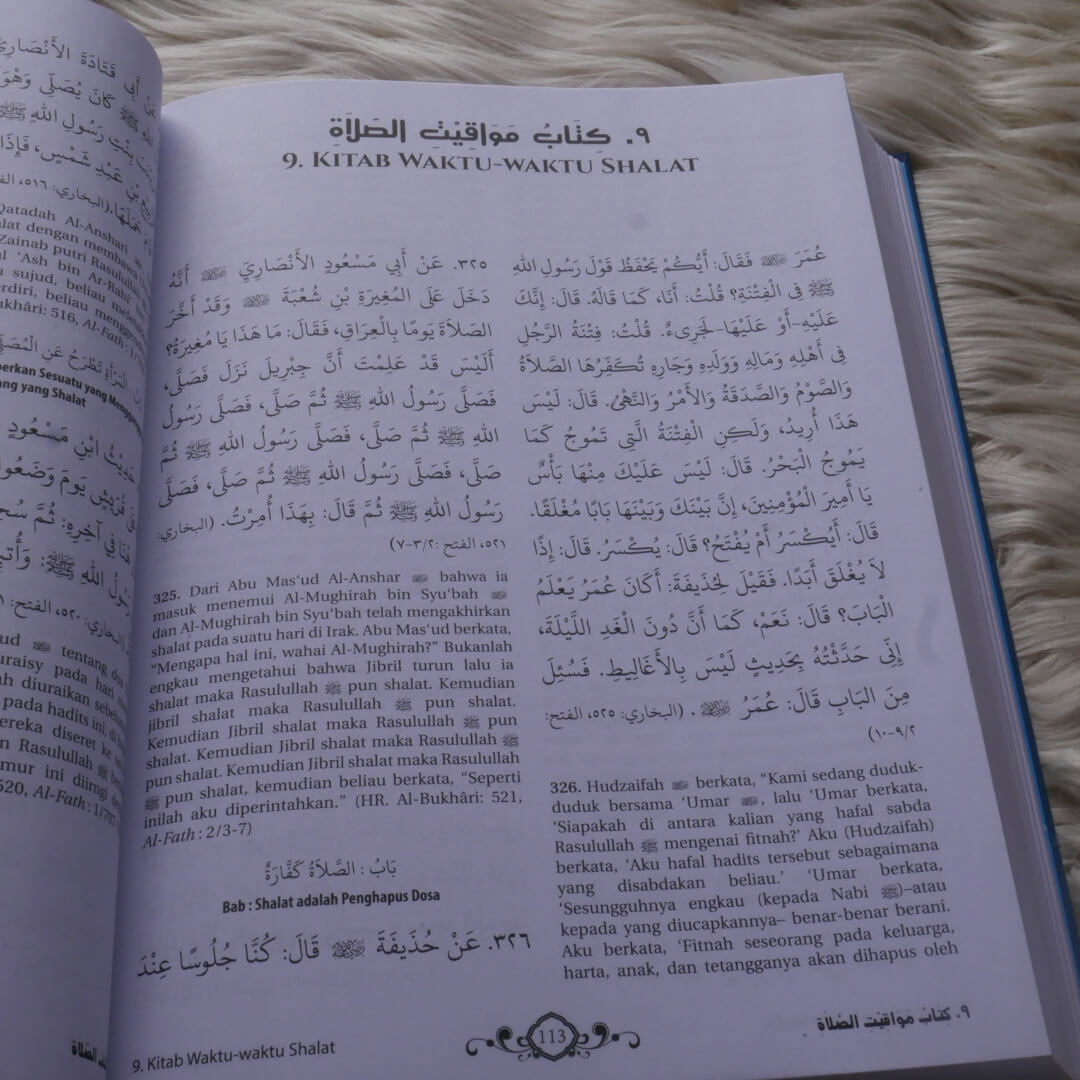 عَنْ أَبِي قَتَادَةَ الأَنْصَارِيِّ
كَانَ يُصَلِّي وَهْوَ
بِنْتِ رَسُولِ اللهِ ﷺ
بْنِ عَبْدِ شَمْسٍ، فَإِذَا
حَمَلَهَا. (البخاري: ٥١٦،
Qatadah Al-Anshari
dengan membawa
Zainab putri Rasulullah
'Ash bin Ar-Rabi'
sujud, beliau
berdiri, beliau
516, Al-Fath: 1/
المَرْأَةِ تَطْرَحُ عَنِ الْمُصَلِّي
Sesuatu yang
yang Shalat
حَدِيْثُ ابْنِ مَسْعُودٍ
قُرَيْشٍ يَوْمَ وَضَعُوا
هُنَا فِي آخِرِهِ: ثُمَّ
رَسُولُ اللهِ ﷺ:
(البخاري: ٥٢٠، الفتح:
tentang
pada hari
diuraikan
pada hadits ini,
diseret ke
Rasulullah ﷺ
ini diirngi
520, Al-Fath: 1/707
٩. كِتَابُ مَوَاقِيْتِ الصَّلاَةِ
9. KITAB WAKTU-WAKTU SHALAT
٣٢٥. عَنْ أَبِي مَسْعُودٍ الأَنْصَارِيِّ ؓ أَنَّهُ
دَخَلَ عَلَى المُغِيرَةِ بْنِ شُعْبَةَ ؓ وَقَدْ أَخَّرَ
الصَّلاَةَ يَومًا بِالْعِرَاقِ، فَقَالَ: مَا هَذَا يَا مُغِيرَةُ؟
أَلَيْسَ قَدْ عَلِمْتَ أَنَّ جِبْرِيلَ نَزَلَ فَصَلَّى،
فَصَلَّى رَسُولُ اللهِ ﷺ ثُمَّ صَلَّى، فَصَلَّى رَسُولُ
اللهِ ﷺ ثُمَّ صَلَّى، فَصَلَّى رَسُولُ اللهِ ﷺ ثُمَّ
صَلَّى، فَصَلَّى رَسُولُ اللهِ ﷺ ثُمَّ صَلَّى، فَصَلَّى
رَسُولُ اللهِ ﷺ ثُمَّ قَالَ: بِهَذَا أُمِرْتُ. (البخاري:
٥٢١، الفتح: ٣/٢-٧)
325. Dari Abu Mas'ud Al-Anshar ؓ bahwa ia
masuk menemui Al-Mughirah bin Syu'bah ؓ
dan Al-Mughirah bin Syu'bah telah mengakhirkan
shalat pada suatu hari di Irak. Abu Mas'ud berkata,
"Mengapa hal ini, wahai Al-Mughirah?" Bukanlah
engkau mengetahui bahwa Jibril turun lalu ia
shalat maka Rasulullah ﷺ pun shalat. Kemudian
jibril shalat maka Rasulullah ﷺ pun shalat.
Kemudian Jibril shalat maka Rasulullah ﷺ pun
shalat. Kemudian Jibril shalat maka Rasulullah ﷺ
pun shalat. Kemudian Jibril shalat maka Rasulullah
ﷺ pun shalat, kemudian beliau berkata, "Seperti
inilah aku diperintahkan." (HR. Al-Bukhâri: 521,
Al-Fath : 2/3-7)
بَابُ : الصَّلاَةُ كَفَّارَةٌ
Bab : Shalat adalah Penghapus Dosa
٣٢٦. عَنْ حُذَيفَةَ ؓ قَالَ: كُنَّا جُلُوسًا عِنْدَ
عُمَرَ ؓ فَقَالَ: أَيُّكُمْ يَحْفَظُ قَوْلَ رَسُولِ اللهِ
ﷺ فِي الْفِتْنَةِ؟ قُلْتُ: أَنَا، كَمَا قَالَهُ. قَالَ: إِنَّكَ
عَلَيْهِ-أَوْ عَلَيْهَا-لَجَرِيءٌ. قُلْتُ: فِتْنَةُ الرَّجُلِ
فِي أَهْلِهِ وَمَالِهِ وَوَلَدِهِ وَجَارِهِ تُكَفِّرُهَا الصَّلاَةُ
وَالصَّوْمُ وَالصَّدَقَةُ وَالأَمْرُ وَالنَّهْيُ. قَالَ: لَيْسَ
هَذَا أُرِيدُ، وَلَكِنِ الْفِتْنَةُ الَّتِي تَمُوجُ كَمَا
يَمُوجُ الْبَحْرُ. قَالَ: لَيْسَ عَلَيْكَ مِنْهَا بَأْسٌ
يَا أَمِيرَ الْمُؤْمِنِينَ، إِنَّ بَيْنَكَ وَبَيْنَهَا بَابًا مُغْلَقًا.
قَالَ: أَيُكْسَرُ أَمْ يُفْتَحُ؟ قَالَ: يُكْسَرُ. قَالَ: إِذًا
لاَ يُغْلَقَ أَبَدًا. فَقِيْلَ لِحُذَيفَةَ: أَكَانَ عُمَرُ يَعْلَمُ
الْبَابَ؟ قَالَ: نَعَمْ، كَمَا أَنَّ دُونَ الْغَدِ اللَّيْلَةَ،
إِنِّي حَدَّثْتُهُ بِحَدِيثٍ لَيْسَ بِالأَغَالِيطِ. فَسُئِلَ
مِنَ الْبَابِ قَالَ: عُمَرُ ؓ. (البخاري: ٥٢٥، الفتح:
٩/٢-١٠)
326. Hudzaifah ؓ berkata, "Kami sedang duduk-
duduk bersama 'Umar ؓ, lalu 'Umar berkata,
'Siapakah di antara kalian yang hafal sabda
Rasulullah ﷺ mengenai fitnah?' Aku (Hudzaifah)
berkata, 'Aku hafal hadits tersebut sebagaimana
yang disabdakan beliau.' 'Umar berkata,
'Sesungguhnya engkau (kepada Nabi ﷺ)–atau
kepada yang diucapkannya– benar-benar berani.
Aku berkata, 'Fitnah seseorang pada keluarga,
harta, anak, dan tetangganya akan dihapus oleh
9. Kitab Waktu-waktu Shalat
113
٩. كِتَابُ مَوَاقِيْتِ الصَّلاَةِ